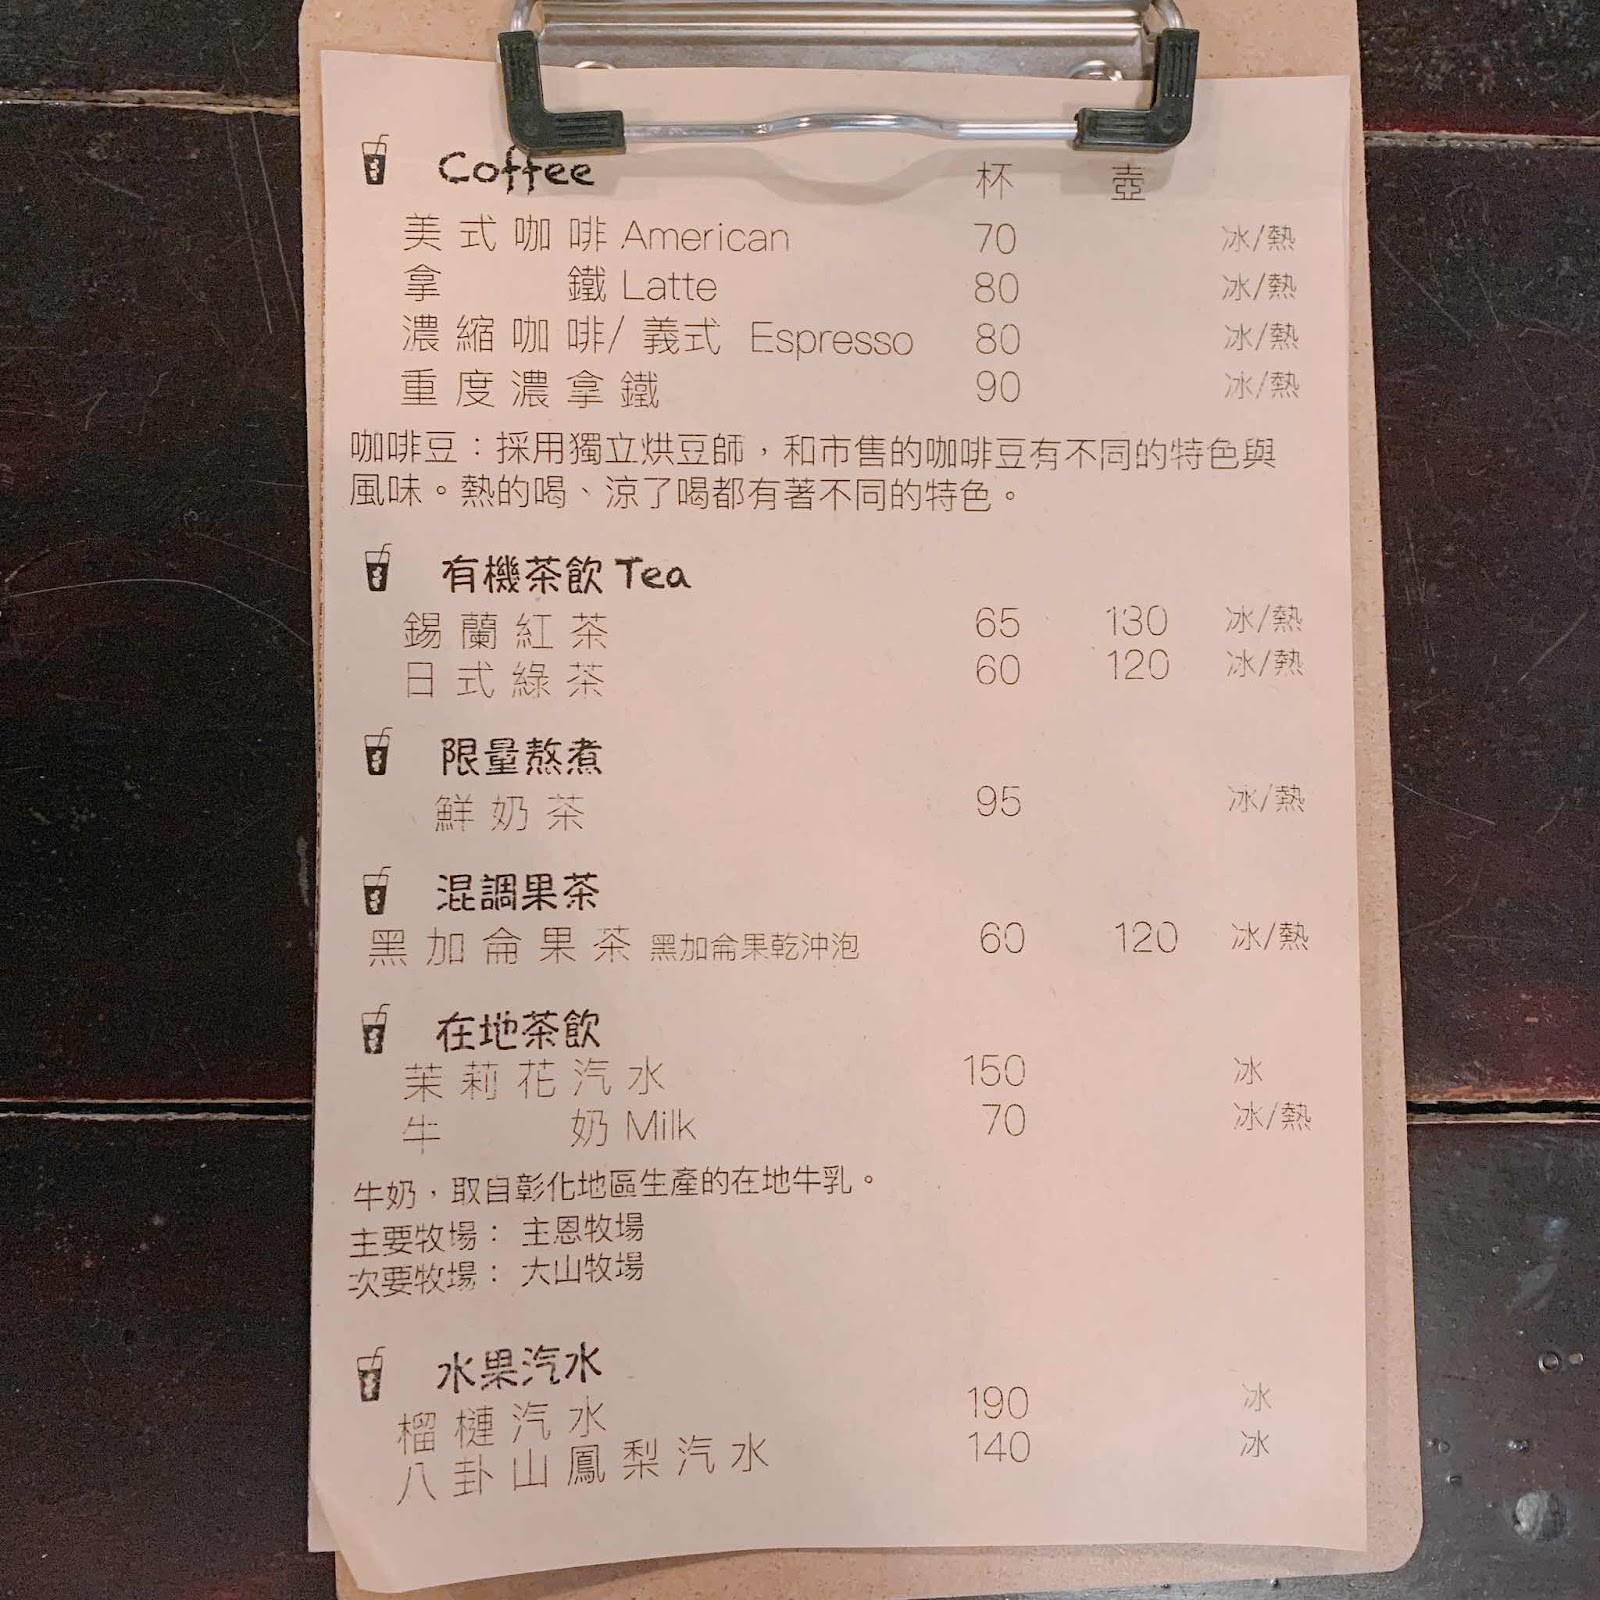 Coffee 杯 壺
美式咖啡 American 70 冰/熱
拿 鐵 Latte 80 冰/熱
濃縮咖啡/義式 Espresso 80 冰/熱
重度濃拿鐵 90 冰/熱
咖啡豆：採用獨立烘豆師，和市售的咖啡豆有不同的特色與
風味。熱的喝、涼了喝都有著不同的特色。
有機茶飲 Tea
錫蘭紅茶 65 130 冰/熱
日式綠茶 60 120 冰/熱
限量熬煮
鮮奶茶 95 冰/熱
混調果茶
黑加侖果茶 黑加侖果乾沖泡 60 120 冰/熱
在地茶飲
茉莉花汽水 150 冰
牛 奶 Milk 70 冰/熱
牛奶，取自彰化地區生產的在地牛乳。
主要牧場： 主恩牧場
次要牧場： 大山牧場
水果汽水
榴槤汽水 190 冰
八卦山鳳梨汽水 140 冰